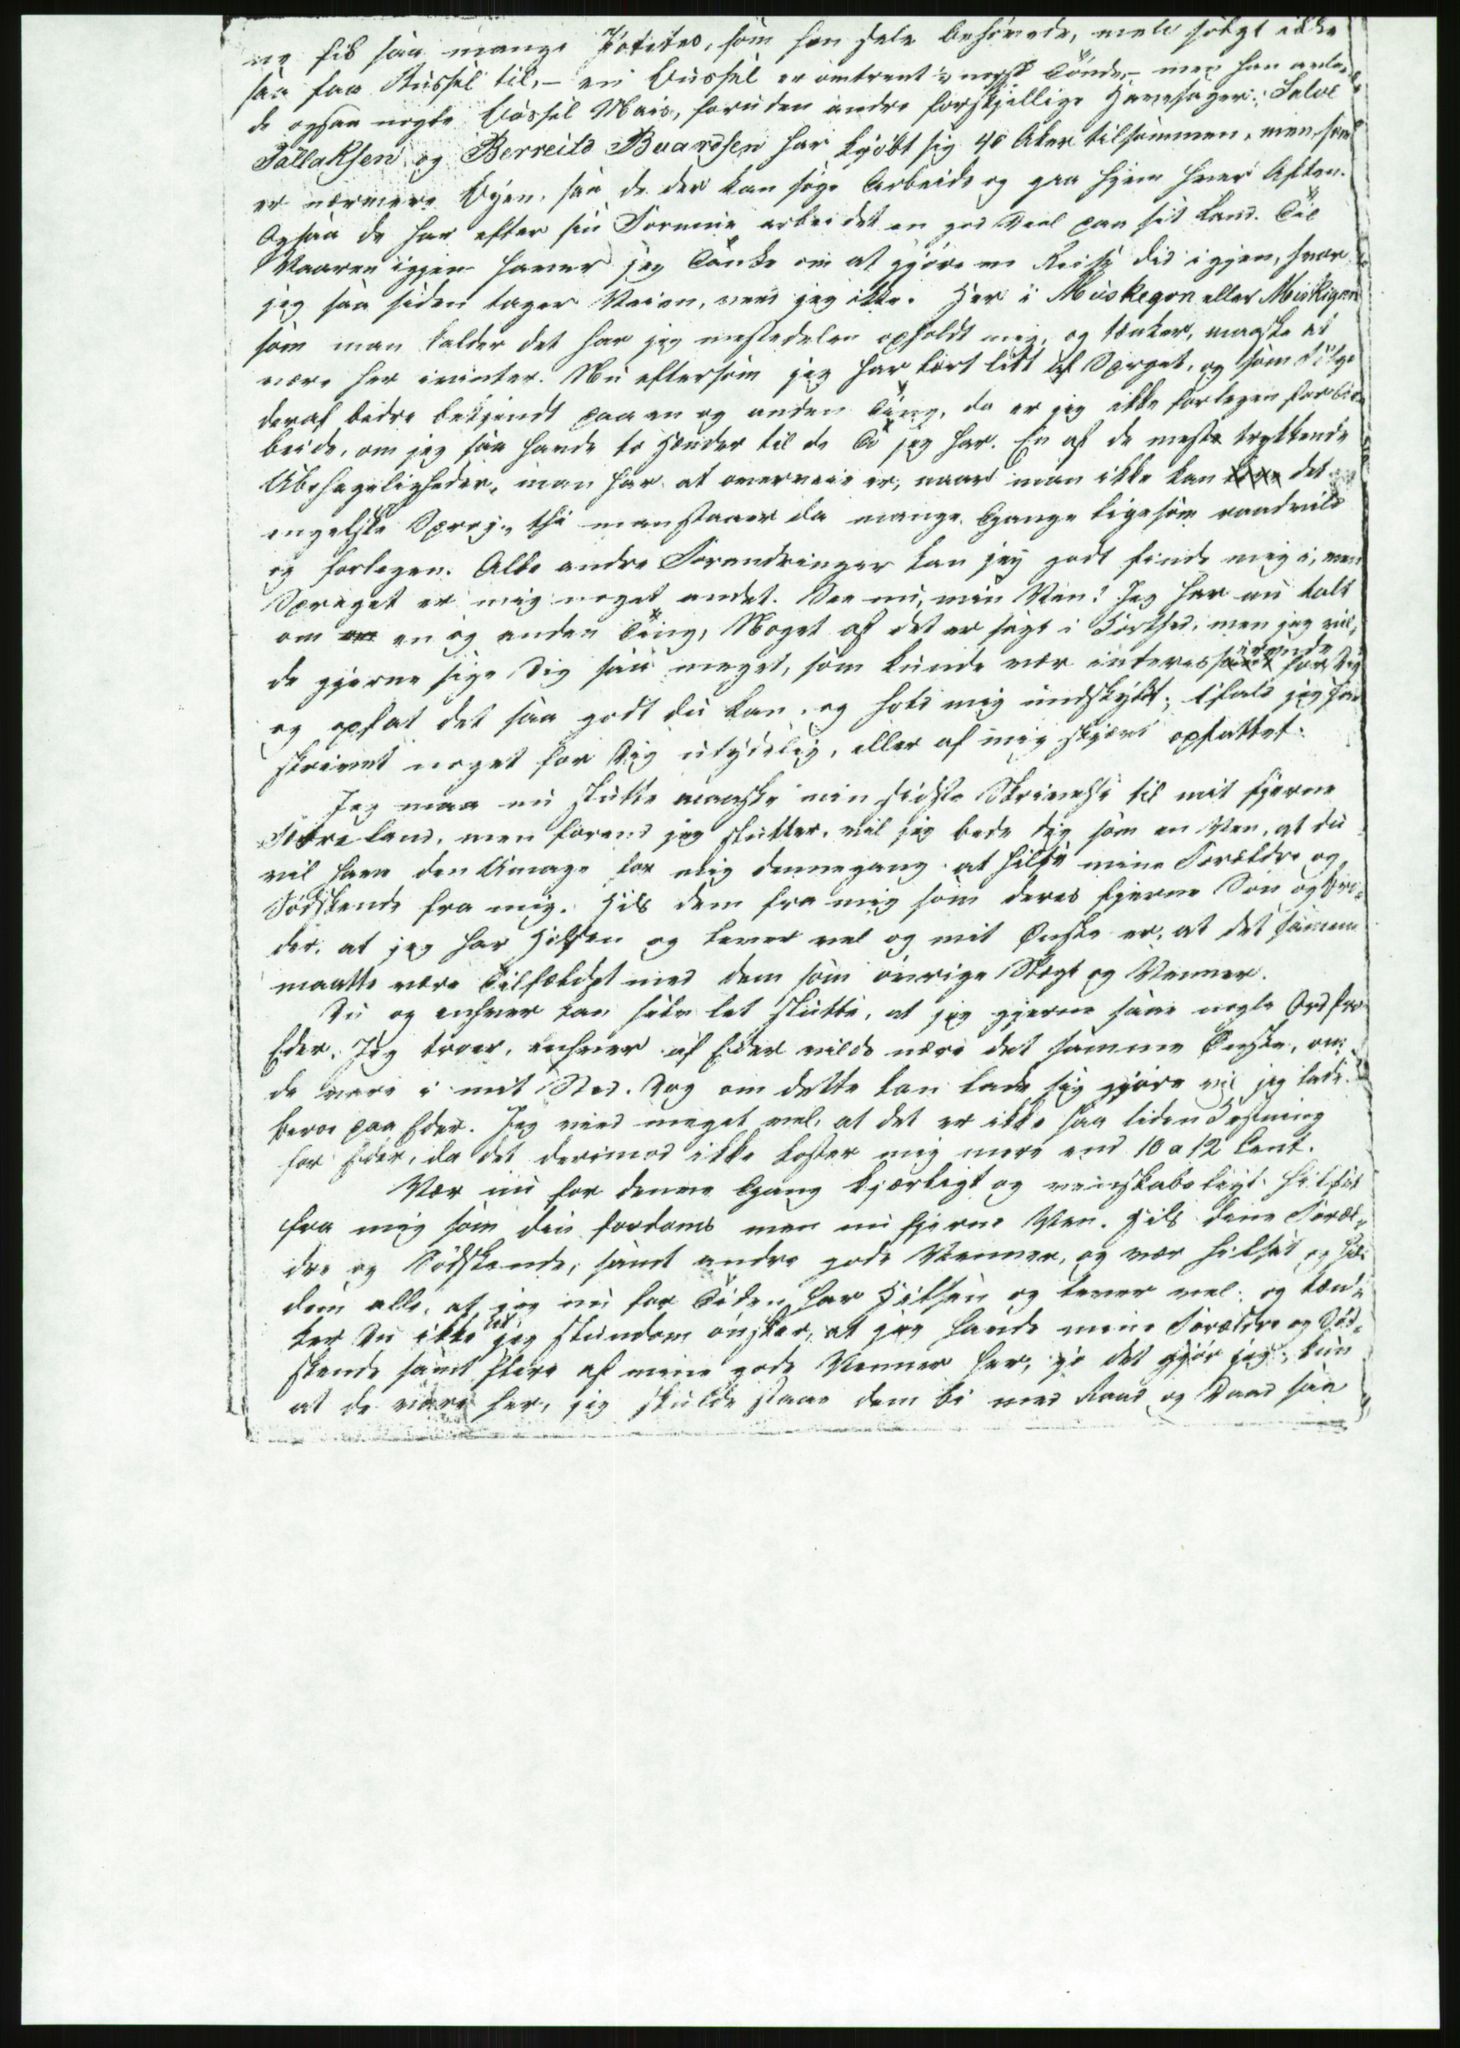 ne fik saa mange Potites, som han selv behøvede, men solgt ikke
saa faa Bussel til, – en Bussel er omtrent ¼ norsk Tønde, – men han avle-
de ogsaa nogle Bussel Mais, foruden andre forskjellige Havesager. Salve
Tallaksen og Berreito Baardsen har kjøbt sig 40 Aker tilsammen, men som
er nærmere Byen, saa de der kan søge Arbeide og gaa hjem hver Aften.
Ogsaa de har efter sin Formue arbeidet en god Deel paa sit Land. Til
Vaaren igjen haver jeg Tanke om at gjøre en Reise did igjen, hvor
jeg saa siden tager Veien, veed jeg ikke. Her i Muskegon eller Muskigen
som man kalder det har jeg mestedelen opholdt mig, og tænker, maaske at
være her ivinter. Nu eftersom jeg har lært litt af Sproget, og som Følge
deraf bedre bekjendt paa en og anden Ting, da er jeg ikke forlegen for Ar-
beide, om jeg saa havde to Hænder til de To jeg har. En af de mest trykkende
Ubehageligheder, man har at overveie er, naar man ikke kan det
engelske Sprog, thi man staaer da mange Gange ligesom raadvild
og forlegen. Alle andre Forandringer kan jeg godt finde mig i, men
Sproget er mig noget andet. See nu, min Ven! Jeg har nu talt
om en og anden Ting, Noget af det er sagt i Korthed, men jeg vil-
de gjerne sige Dig saa meget, som kunde vær interessærende for Dig
og opfat det saa godt du kan, og hold mig undskyldt, ifald jeg har
skrevet noget for Dig utydelig, eller af mig skjævt opfattet.
Jeg maa nu slutte maaske min sidste Skrivelse til mit fjerne
Fødreland, men førend jeg slutter, vil jeg bede Dig som en Ven, at du
vil have den Umage for mig dennegang at hilse mine Forældre og
Sødskende fra mig. Hils dem fra mig som deres fjerne Søn og Bro-
der, at jeg har Helsen og lever vel og mit Ønske er, at det samme
maatte være Tilfældet med dem som øvrige Slægt og Venner.
Du og enhver kan selv let slutte, at jeg gjerne saae nogle Ord fra
Eder. Jeg troer, enhver af Eder vilde være det samme Ønske, om
de vare i mit Sted. Dog om dette kan lade sig gjøre vil jeg lade
beroe paa Eder. Jeg veed meget vel, at det er ikke saa liden Kostning
for Eder, da det derimod ikke koster mig mere end 10 a 12 Cent.
Vær nu for denne Gang kjærligt og venskabeligt hilset
fra mig som din fordoms men nu fjerne Ven. Hils dine Foræl-
dre og Sødskende, samt andre gode Venner, og vær hilset og hils
dem alle, at jeg nu for Tiden har Helsen og lever vel, og tæn-
ker Du ikke at jeg stundom ønsker, at jeg havde mine Forældre og Sød-
skende samt flere af mine gode Venner her, jo det gjør jeg, kun
at de vare her, jeg skulde staae dem bi med Raad og Daad saa